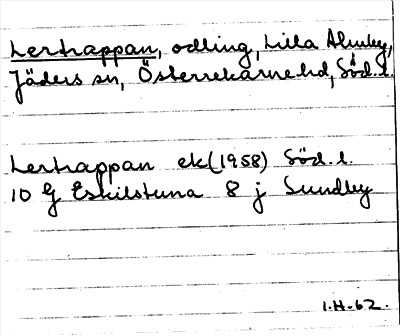 Lertrappan, odling, Lilla Almby,
Jäders sn, Österrekarne hd, Söd. l.
Lertrappan ek(1958) Söd. l.
10 G Eskilstuna 8 j Sundby
I.H.62.